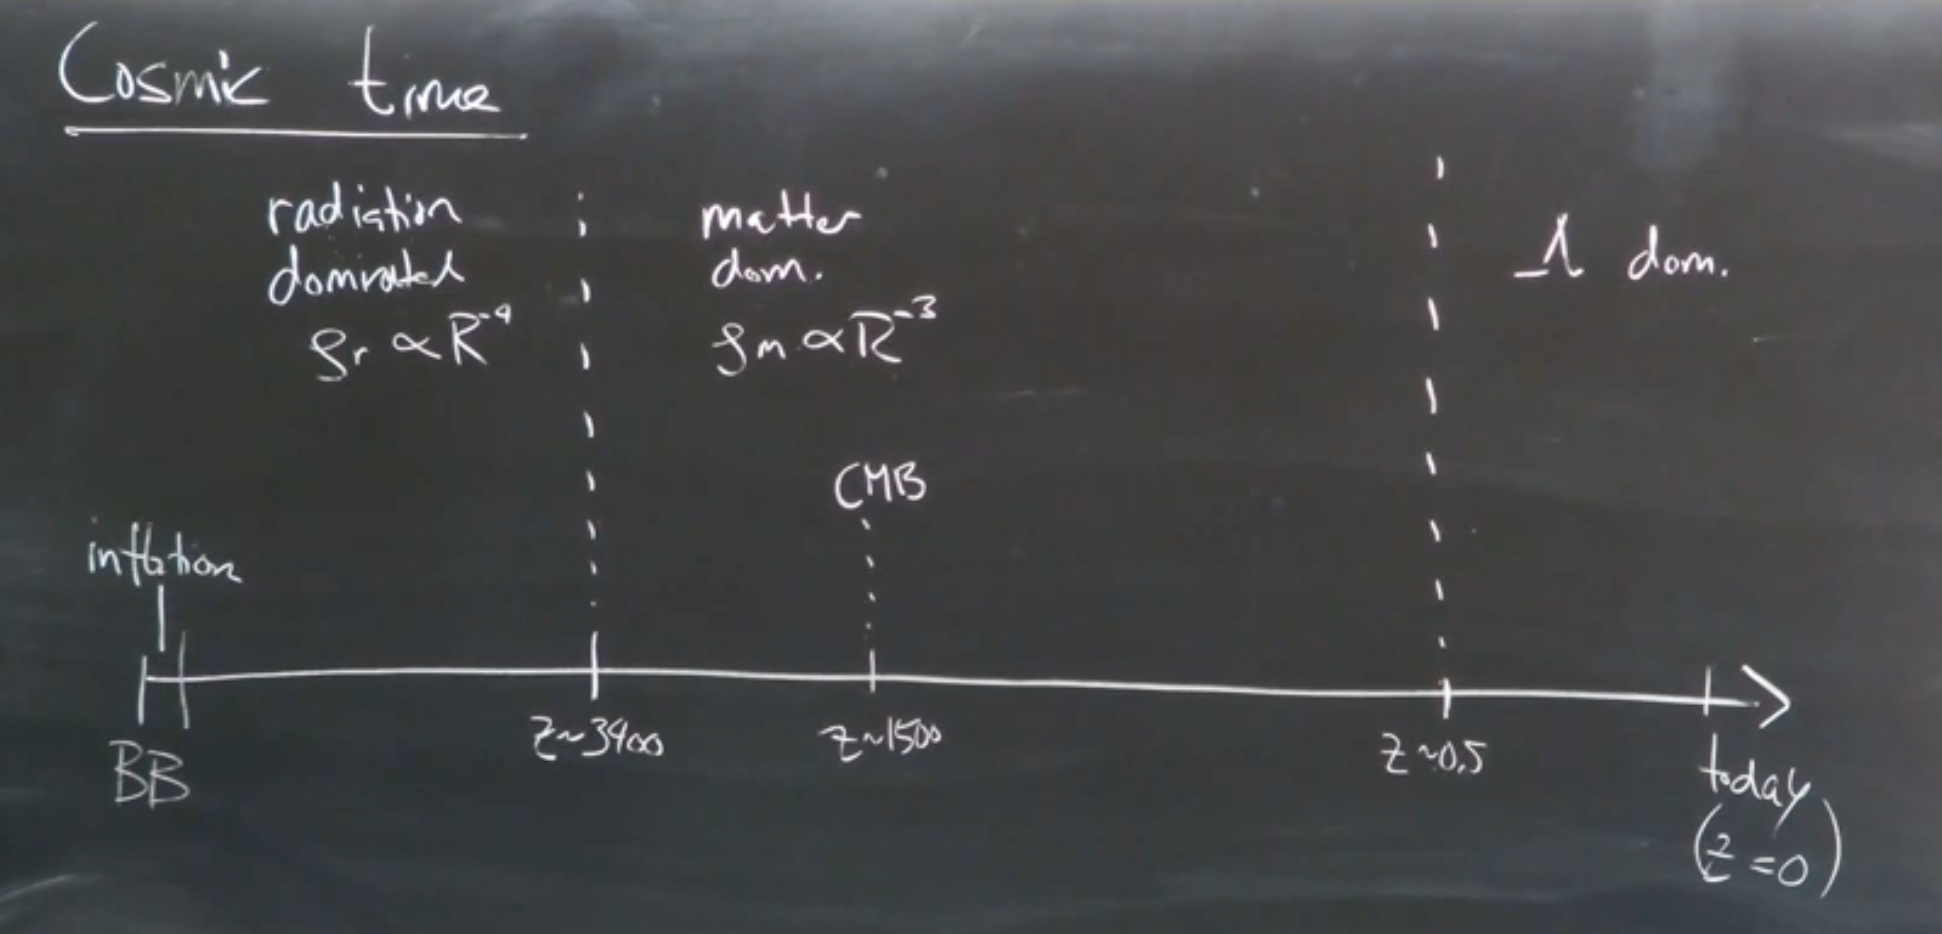 Cosmic time
radiation
dominated
ρr ∝ R⁻⁴
matter
dom.
ρm ∝ R⁻³
Λ dom.
CMB
inflation
BB
z~3400
z~1500
z~0.5
today
(z=0)